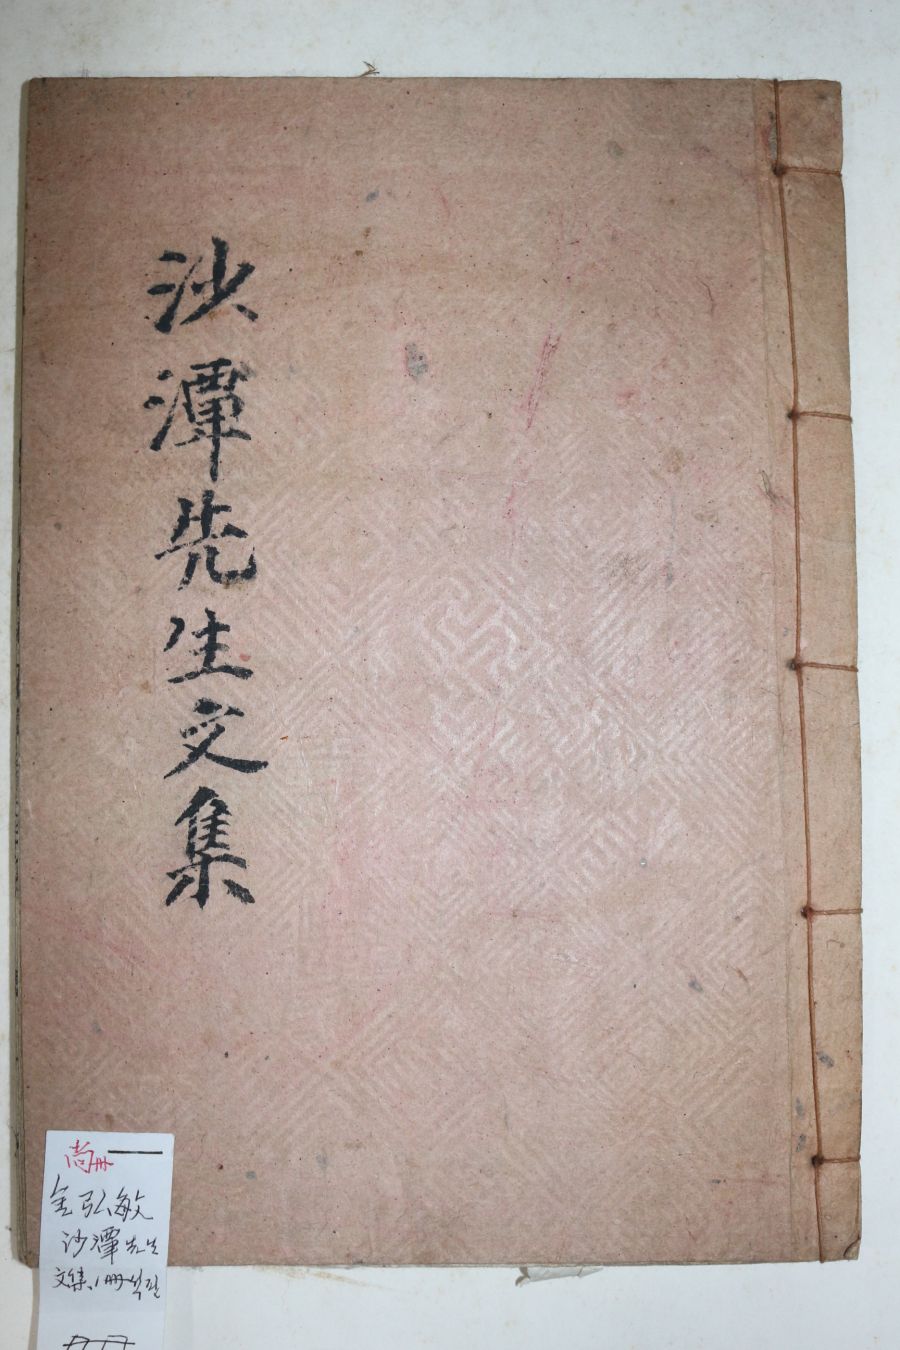 沙潭先生文集
尙冊
金弘敏
沙潭先生
文集、1冊